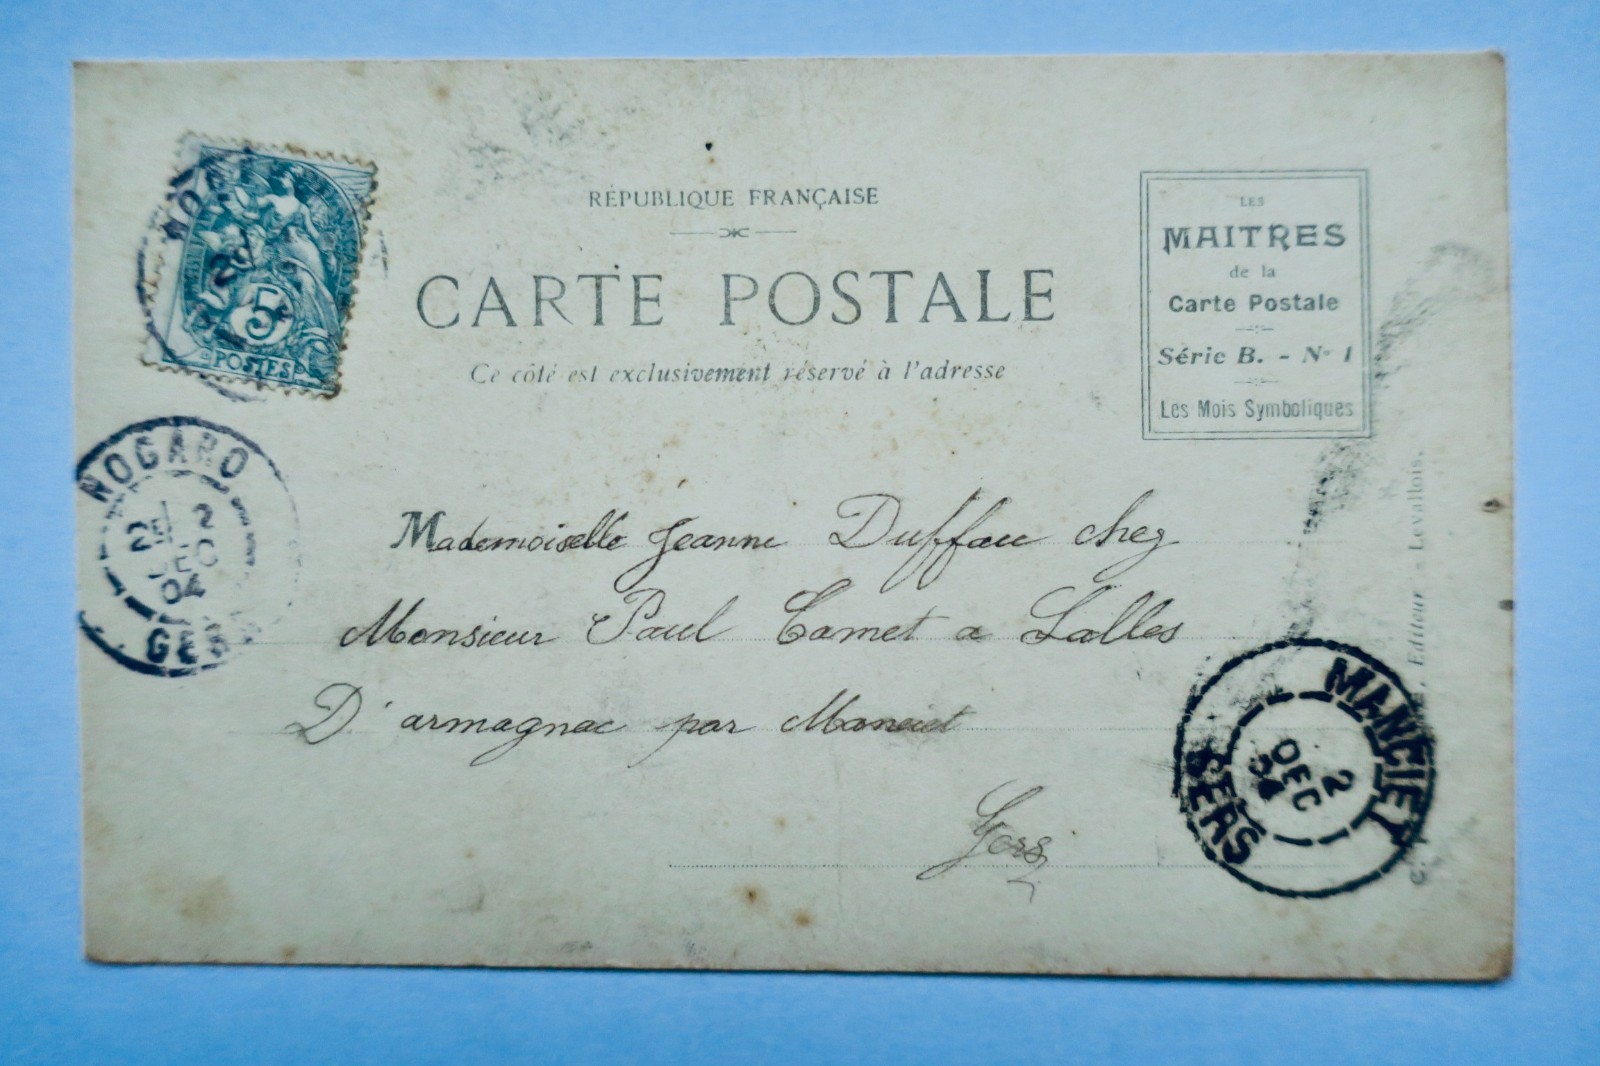 RÉPUBLIQUE FRANÇAISE
CARTE POSTALE
Ce côté est exclusivement réservé à l'adresse
LES
MAITRES
de la
Carte Postale
Série B. - No 1
Les Mois Symboliques
5
POSTES
NOGARO
2
DEC
04
GERS
Mademoiselle Jeanne Duffau chez
Monsieur Paul Camet a Salles
D'armagnac par Manciet
Gers
MANCIET
2
DEC
04
GERS
Editeur Levallois.